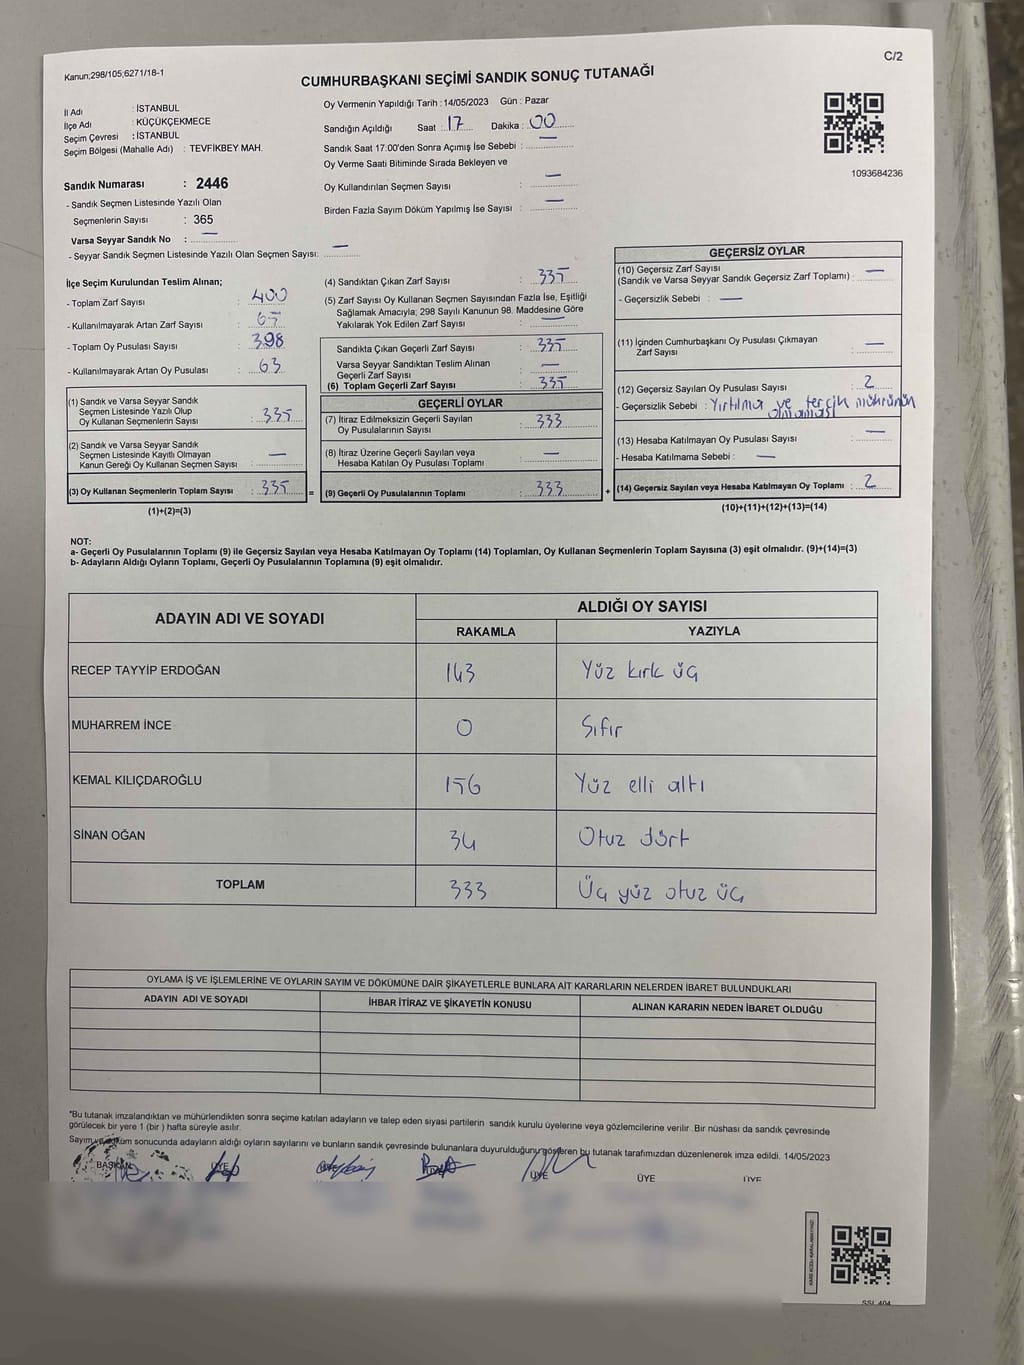 Kanun;298/105;6271/18-1
C/2
CUMHURBAŞKANI SEÇİMİ SANDIK SONUÇ TUTANAĞI
İl Adı : İSTANBUL
İlçe Adı : KÜÇÜKÇEKMECE
Seçim Çevresi : İSTANBUL
Seçim Bölgesi (Mahalle Adı) : TEVFİKBEY MAH.
Sandık Numarası : 2446
- Sandık Seçmen Listesinde Yazılı Olan
Seçmenlerin Sayısı : 365
Varsa Seyyar Sandık No : —
- Seyyar Sandık Seçmen Listesinde Yazılı Olan Seçmen Sayısı: —
Oy Vermenin Yapıldığı Tarih : 14/05/2023 Gün : Pazar
Sandığın Açıldığı Saat : 17 Dakika : 00
Sandık Saat 17:00'den Sonra Açımış İse Sebebi : —
Oy Verme Saati Bitiminde Sırada Bekleyen ve
Oy Kullandırılan Seçmen Sayısı : —
Birden Fazla Sayım Döküm Yapılmış İse Sayısı : —
1093684236
İlçe Seçim Kurulundan Teslim Alınan;
- Toplam Zarf Sayısı : 400
- Kullanılmayarak Artan Zarf Sayısı : 65
- Toplam Oy Pusulası Sayısı : 398
- Kullanılmayarak Artan Oy Pusulası : 63
(1) Sandık ve Varsa Seyyar Sandık
Seçmen Listesinde Yazılı Olup
Oy Kullanan Seçmenlerin Sayısı : 335
(2) Sandık ve Varsa Seyyar Sandık
Seçmen Listesinde Kayıtlı Olmayan
Kanun Gereği Oy Kullanan Seçmen Sayısı : —
(3) Oy Kullanan Seçmenlerin Toplam Sayısı : 335
(1)+(2)=(3)
(4) Sandıktan Çıkan Zarf Sayısı : 335
(5) Zarf Sayısı Oy Kullanan Seçmen Sayısından Fazla İse, Eşitliği
Sağlamak Amacıyla; 298 Sayılı Kanunun 98. Maddesine Göre
Yakılarak Yok Edilen Zarf Sayısı : —
Sandıkta Çıkan Geçerli Zarf Sayısı : 335
Varsa Seyyar Sandıktan Teslim Alınan
Geçerli Zarf Sayısı : —
(6) Toplam Geçerli Zarf Sayısı : 335
GEÇERLİ OYLAR
(7) İtiraz Edilmeksizin Geçerli Sayılan
Oy Pusulalarının Sayısı : 333
(8) İtiraz Üzerine Geçerli Sayılan veya
Hesaba Katılan Oy Pusulası Toplamı : —
= (9) Geçerli Oy Pusulalarının Toplamı : 333
GEÇERSİZ OYLAR
(10) Geçersiz Zarf Sayısı
(Sandık ve Varsa Seyyar Sandık Geçersiz Zarf Toplamı) : —
- Geçersizlik Sebebi : —
(11) İçinden Cumhurbaşkanı Oy Pusulası Çıkmayan
Zarf Sayısı : —
(12) Geçersiz Sayılan Oy Pusulası Sayısı : 2
- Geçersizlik Sebebi : Yırtılma ve tercih mührünün
olmaması
(13) Hesaba Katılmayan Oy Pusulası Sayısı : —
- Hesaba Katılmama Sebebi : —
+ (14) Geçersiz Sayılan veya Hesaba Katılmayan Oy Toplamı : 2
(10)+(11)+(12)+(13)=(14)
NOT:
a- Geçerli Oy Pusulalarının Toplamı (9) ile Geçersiz Sayılan veya Hesaba Katılmayan Oy Toplamı (14) Toplamları, Oy Kullanan Seçmenlerin Toplam Sayısına (3) eşit olmalıdır. (9)+(14)=(3)
b- Adayların Aldığı Oyların Toplamı, Geçerli Oy Pusulalarının Toplamına (9) eşit olmalıdır.
ADAYIN ADI VE SOYADI
ALDIĞI OY SAYISI
RAKAMLA YAZIYLA
RECEP TAYYİP ERDOĞAN 143 Yüz kırk üç
MUHARREM İNCE 0 Sıfır
KEMAL KILIÇDAROĞLU 156 Yüz elli altı
SİNAN OĞAN 34 Otuz dört
TOPLAM 333 Üç yüz otuz üç
OYLAMA İŞ VE İŞLEMLERİNE VE OYLARIN SAYIM VE DÖKÜMÜNE DAİR ŞİKAYETLERLE BUNLARA AİT KARARLARIN NELERDEN İBARET BULUNDUKLARI
ADAYIN ADI VE SOYADI İHBAR İTİRAZ VE ŞİKAYETİN KONUSU ALINAN KARARIN NEDEN İBARET OLDUĞU
*Bu tutanak imzalandıktan ve mühürlendikten sonra seçime katılan adayların ve talep eden siyasi partilerin sandık kurulu üyelerine veya gözlemcilerine verilir. Bir nüshası da sandık çevresinde
görülecek bir yere 1 (bir ) hafta süreyle asılır.
Sayım ve döküm sonucunda adayların aldığı oyların sayılarını ve bunların sandık çevresinde bulunanlara duyurulduğunu gösteren bu tutanak tarafımızdan düzenlenerek imza edildi. 14/05/2023
BAŞKAN ÜYE ÜYE ÜYE ÜYE